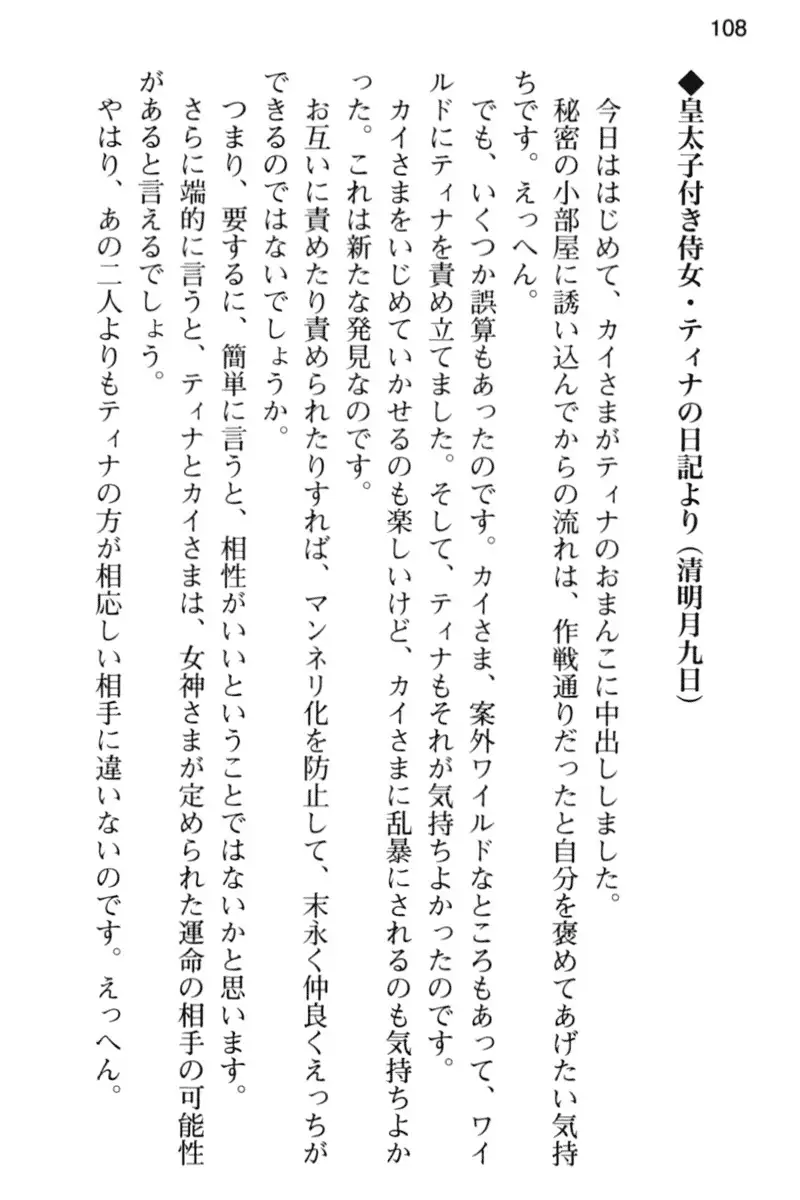 108
◆皇太子付き侍女・ティナの日記より（清明月九日）
今日ははじめて、カイさまがティナのおまんこに中出ししました。
秘密の小部屋に誘い込んでからの流れは、作戦通りだったと自分を褒めてあげたい気持
ちです。えっへん。
でも、いくつか誤算もあったのです。カイさま、案外ワイルドなところもあって、ワイ
ルドにティナを責め立てました。そして、ティナもそれが気持ちよかったのです。
カイさまをいじめていかせるのも楽しいけど、カイさまに乱暴にされるのも気持ちよか
った。これは新たな発見なのです。
お互いに責めたり責められたりすれば、マンネリ化を防止して、末永く仲良くえっちが
できるのではないでしょうか。
つまり、要するに、簡単に言うと、相性がいいということではないかと思います。
さらに端的に言うと、ティナとカイさまは、女神さまが定められた運命の相手の可能性
があると言えるでしょう。
やはり、あの二人よりもティナの方が相応しい相手に違いないのです。えっへん。